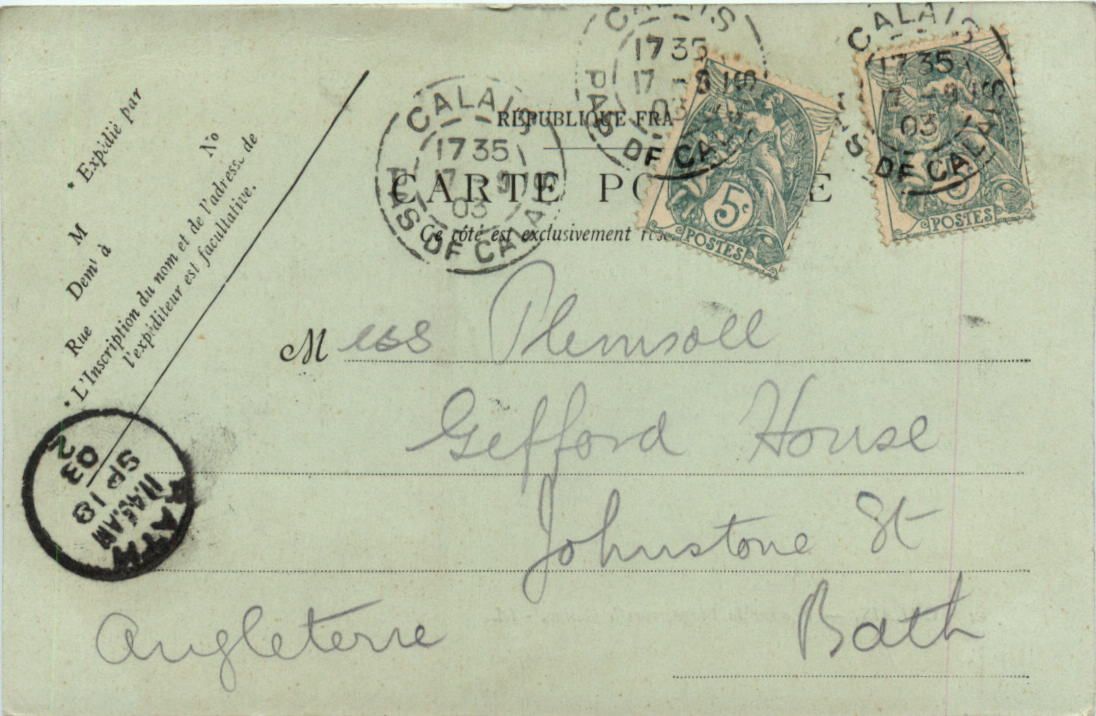 CALAIS
1735
17 - 9
03
PAS DE CALAIS
CALAIS
1735
17 - 9
03
PAS DE CALAIS
CALAIS
1735
17 - 9
03
PAS DE CALAIS
5c
POSTES
5c
POSTES
RÉPUBLIQUE FRA
CARTE PO E
Ce côté est exclusivement rése
* Expédié par
M No
Demt à
Rue
* L'Inscription du nom et de l'adresse de
l'expéditeur est facultative.
Miss Plemsoll
Gefford House
Johnstone St
Bath
Angleterre
BATH
11.45.AM
SP 18
03